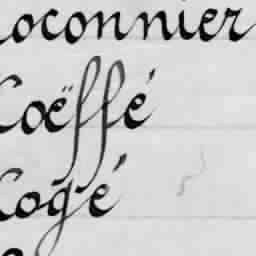 Coconnier
Coëffé
Cogé